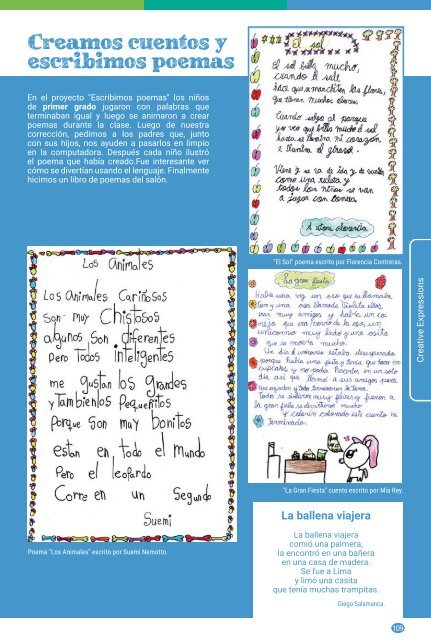 Creamos cuentos y
escribimos poemas
En el proyecto "Escribimos poemas" los niños
de primer grado jugaron con palabras que
terminaban igual y luego se animaron a crear
poemas durante la clase. Luego de nuestra
corrección, pedimos a los padres que, junto
con sus hijos, nos ayuden a pasarlos en limpio
en la computadora. Después cada niño ilustró
el poema que había creado.Fue interesante ver
cómo se divertían usando el lenguaje. Finalmente
hicimos un libro de poemas del salón.
Los Animales
Los Animales Cariñosos
Son muy Chistosos
algunos Son diferentes
Pero todos inteligentes
me gustan los grandes
y también los Pequeñitos
Porque Son muy bonitos
estan en todo el mundo
Pero el leopardo
Corre en un Segundo
Suemi
Poema "Los Animales" escrito por Suemi Nemotto.
El sol
El sol brilla mucho,
cuando él sale
hace que marchiten las flores,
que tienen muchos olores.
Cuando salgo al parque
yo veo que brilla mucho el sol
hasta se ilumina mi corazón
e ilumina el girasol.
Viene y se va de ida y de vuelta
como una ruleta y
todos los niños se van
a jugar con
"El Sol" poema escrito por Florencia Contreras.
La gran fiesta
Había una vez un oso que se llamaba
y una osa llamada Violeta ellos
eran muy amigos y había un co
nejo que era novio de la osa, un
unicornio muy lindo y una osita
que se moría mucho.
Un día el unicornio estaba desesperado
porque había una fiesta y tenía que hacer 100
cupcakes y no podía hacerlos en un solo
día así que llamó a sus amigos para
que ayuden y todos terminaron la tarea.
Todos se sintieron muy felices y fueron a
la gran fiesta se divirtieron mucho
Y colorín colorado este cuento ha
terminado.
"La Gran Fiesta" cuento escrito por Mía Rey.
La ballena viajera
La ballena viajera
comió una palmera,
la encontró en una bañera
en una casa de madera.
Se fue a Lima
y limó una casita
que tenía muchas trampitas.
Diego Salamanca.
Creative Expressions
109